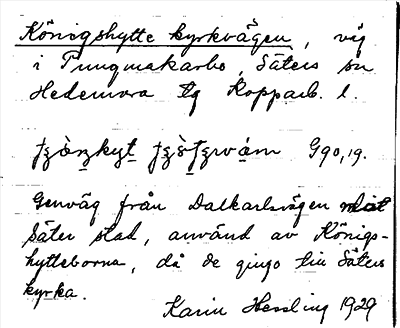 Königshytte kyrkvägen, väg
i Pungmakarbo, Säters sn
Hedemora tg Kopparb. l.
G90,19.
Genväg från Dalkarlsvägen mot
Säter stad, använd av Königs-
hytteborna, då de gingo till Säters
kyrka.
Karin Hessling 1929